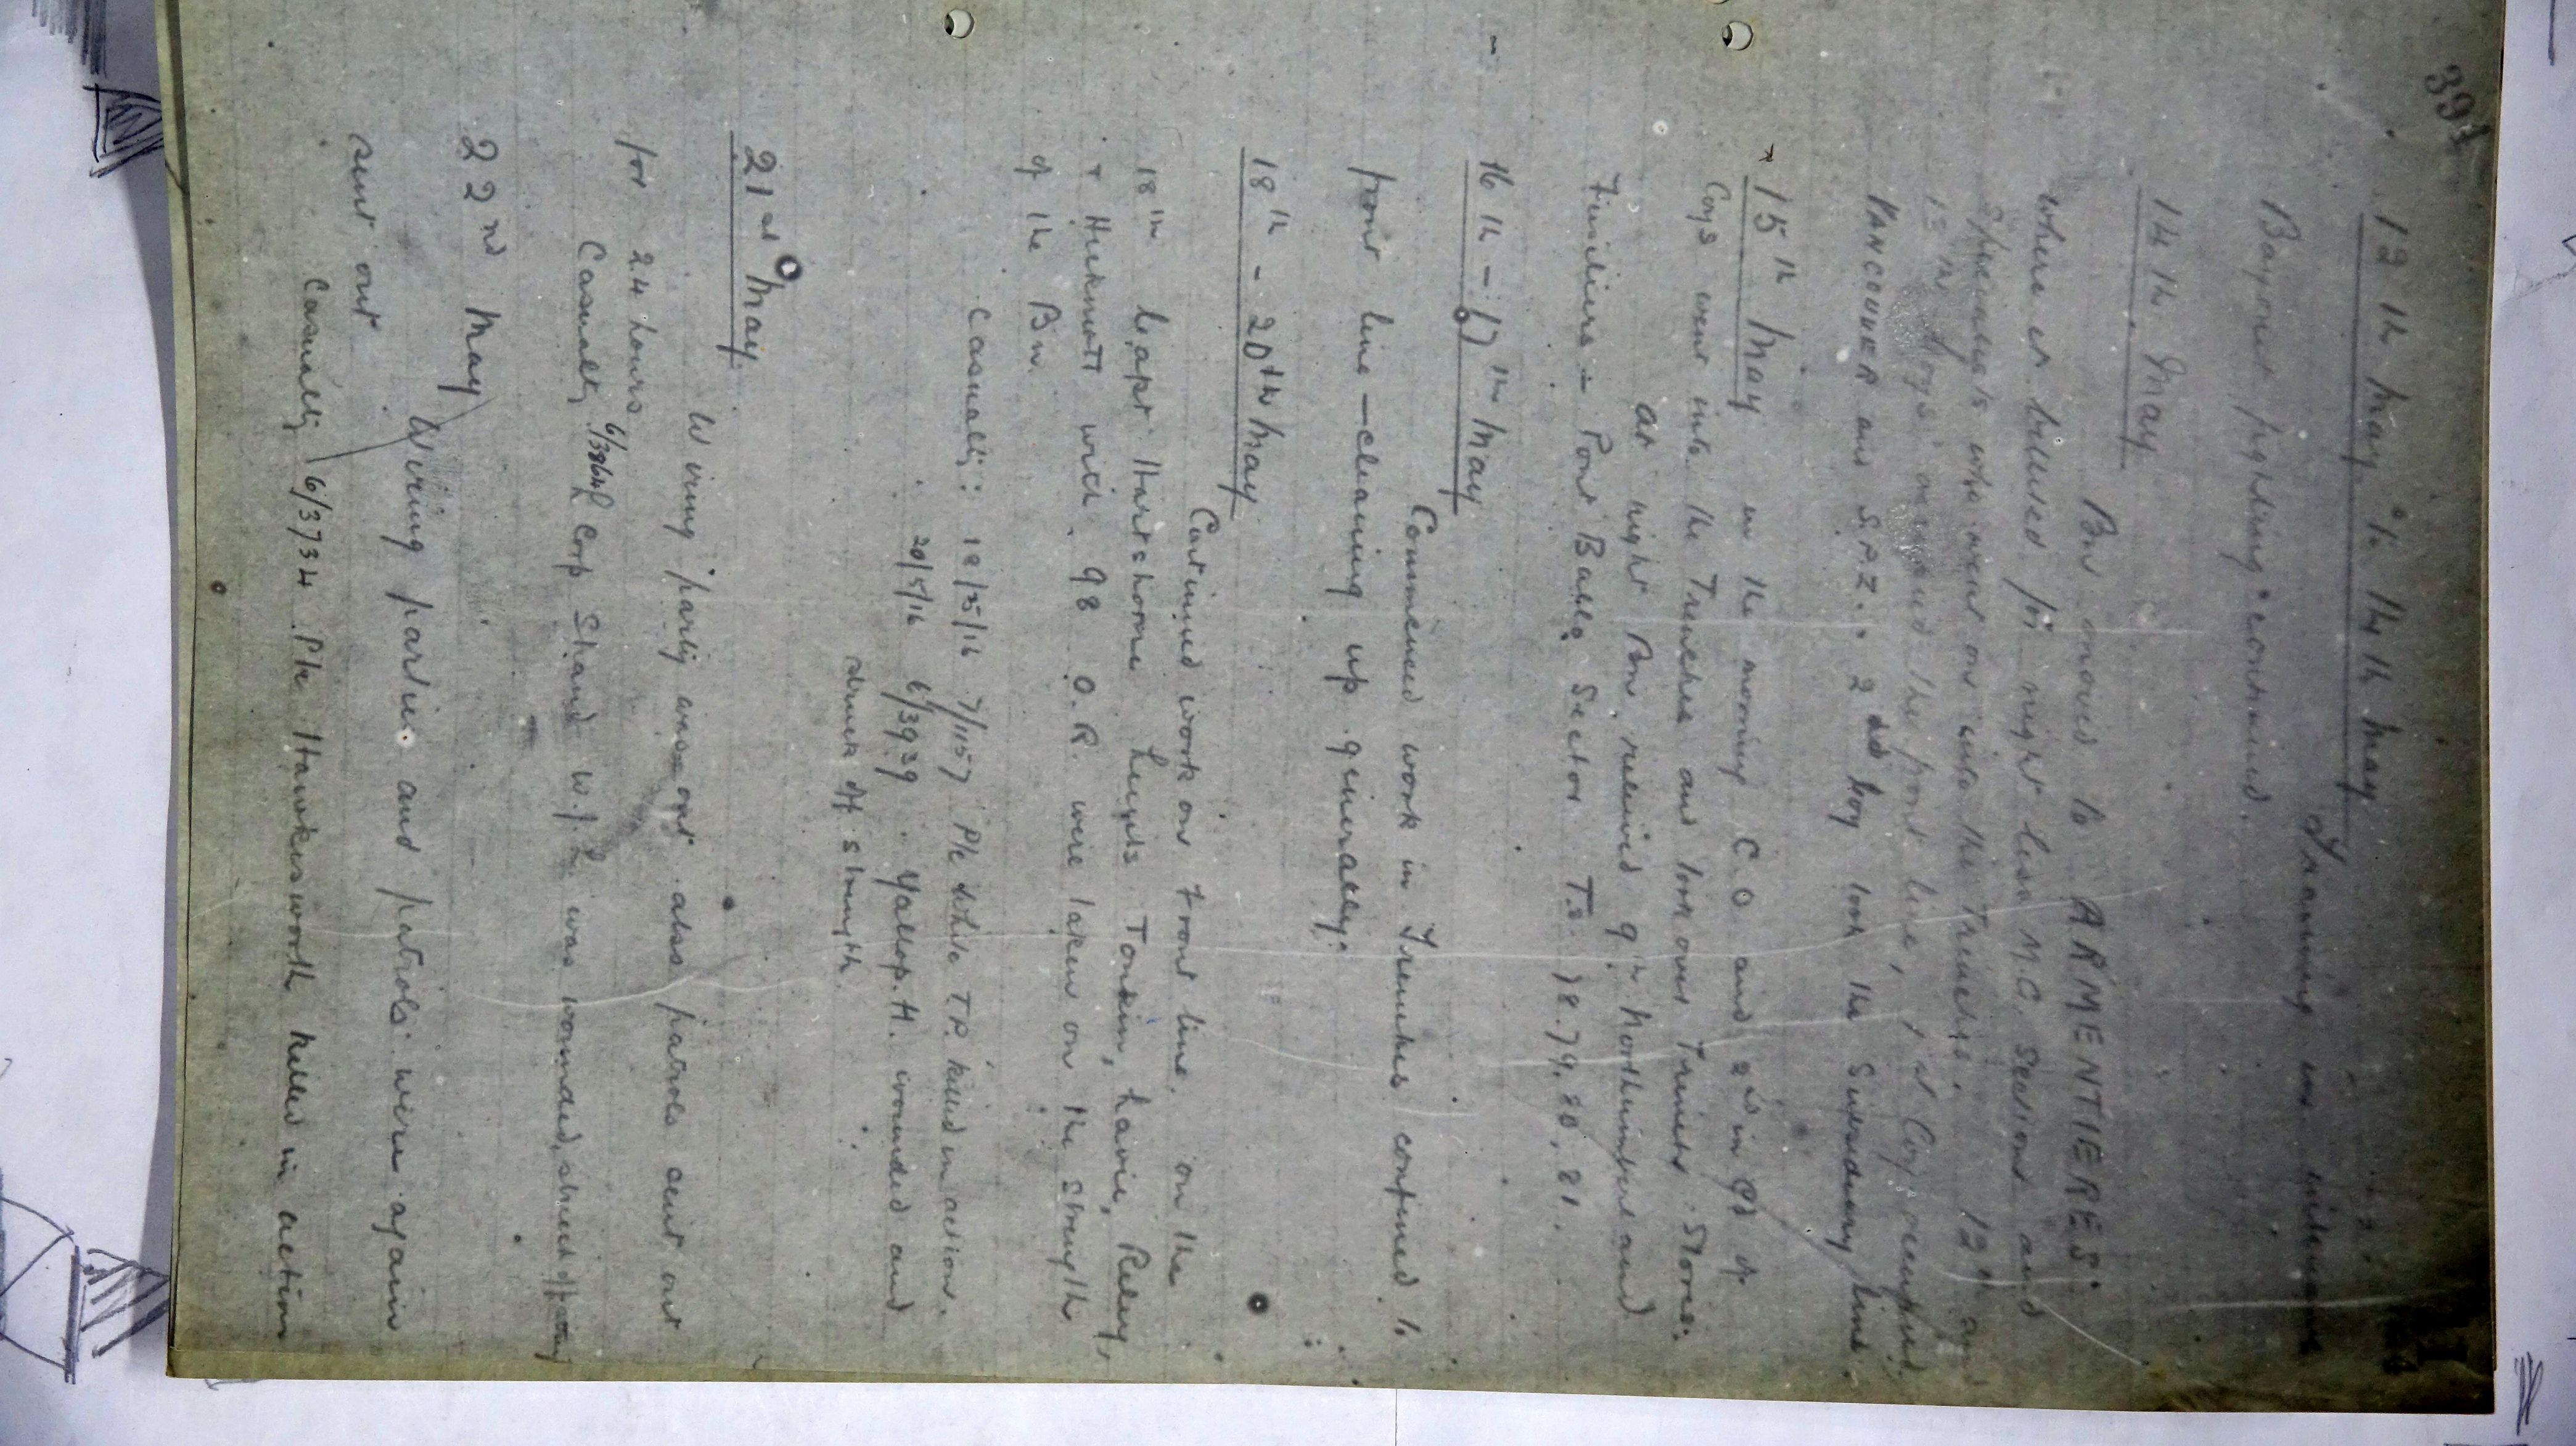 391
12th May to 14th May
Training in
Bayonet fighting continued.
14th May
Bn moved to ARMENTIERES
where it billeted for night less M.C. Sections and
Specialists who went on into the Trenches. 12th and
13th Coys occupied the front line, 1st Coy occupied
VANCOUVER and S.P.Z. 2nd Coy took the Subsidiary line.
15th May in the morning C.O. and 2nd in Cd of
Coys went into the Trenches and took over Trench Stores.
At night Bn relieved 9th Northumberland
Fusiliers - Pont Ballot Sector T.S 78.79.80.81.
16th - 17th May
Commenced work in Trenches confined to
front line — cleaning up generally.
18th - 20th May
Continued work on Front line. on the
18th Capt Hartshorne Lieuts Tonkin, Lavie, Reley,
+ Hicknott with 98 O.R. were taken on the Strength
of the Bn.
Casualty: 18/5/16 7/1157 Pte White T.P. killed in action.
20/5/16 6/3939 Yallop. H. wounded and
struck off strength.
21st May
Wiring party was out also patrols sent out
for 24 hours
Casualty 6/3864 L Corp Shand W.J.L. was wounded, struck off
22nd May
Wiring parties and patrols were again
sent out
Casualty 6/3734 Pte Hawkesworth killed in action